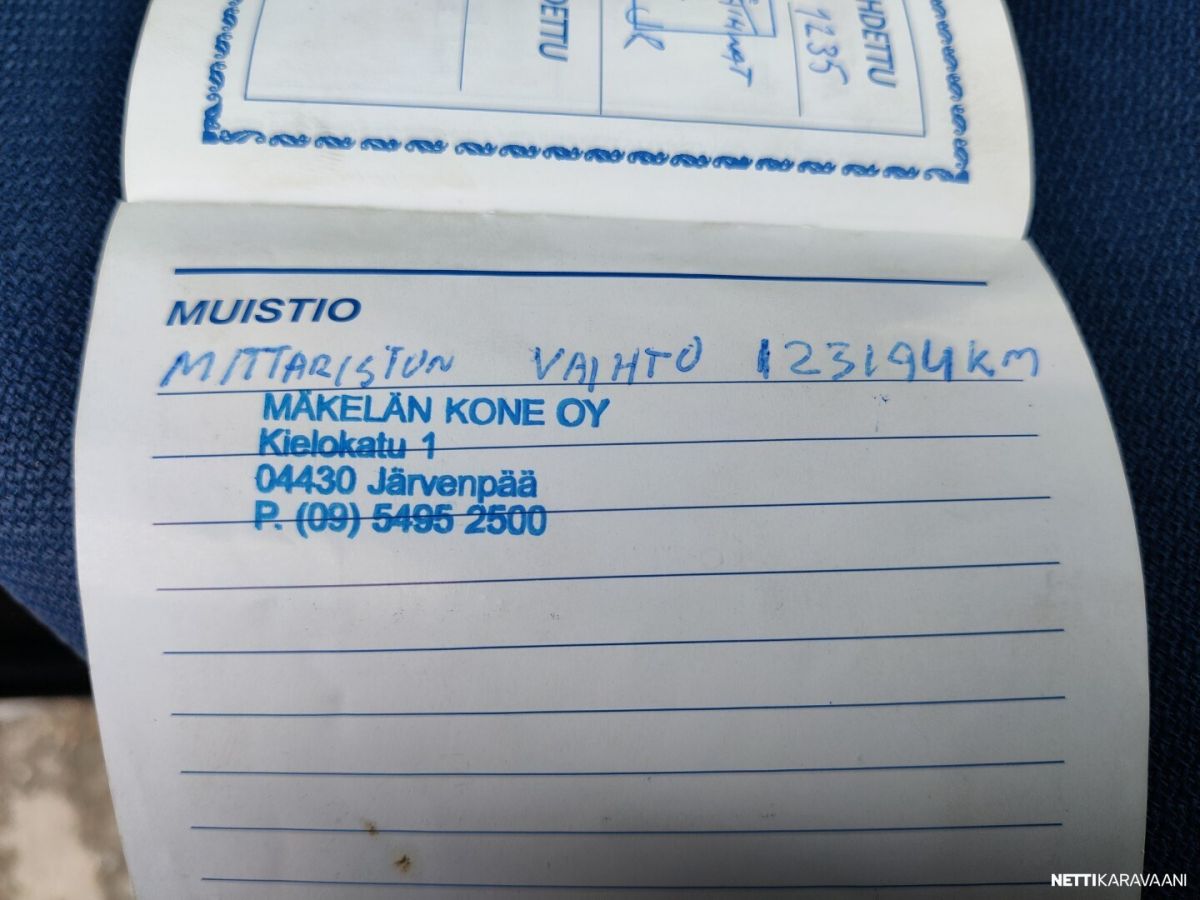 HDETTU
1235
HDETTU
MUISTIO
MITTARISTON VAIHTO 123194KM
MÄKELÄN KONE OY
Kielokatu 1
04430 Järvenpää
P. (09) 5495 2500
NETTIKARAVAANI